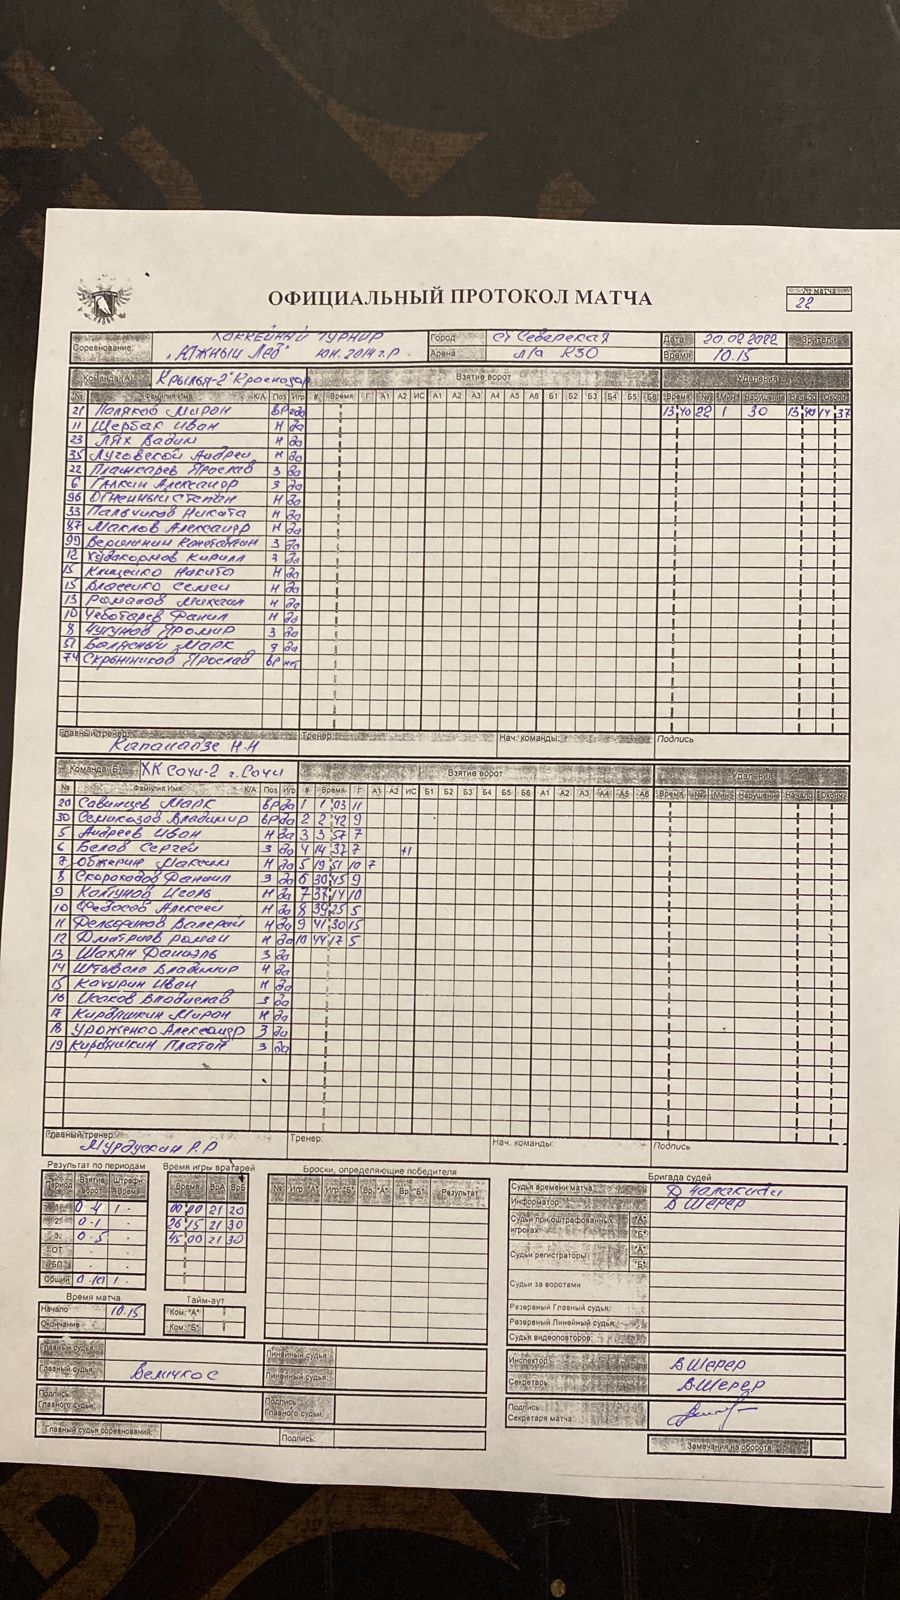 ОФИЦИАЛЬНЫЙ ПРОТОКОЛ МАТЧА
№ матча
22
Соревнование: ХОККЕЙНЫЙ ТУРНИР "Южный Лёд" юн. 2014 г.р.
Город ст Северская Дата 20.02.2022 Зрители
Арена л/а К30 Время 10.15
Команда (А) "Крылья-2" Краснодар Взятие ворот Удаления
№ Фамилия Имя К/А Поз Игр # Время Г А1 А2 ИС А1 А2 А3 А4 А5 А6 Б1 Б2 Б3 Б4 Б5 Б6 Время № Мин Нарушение Начало Оконч
21 Поляков Мирон вр да 13 40 22 1 30 13 40 14 37
11 Щербак Иван Н да
23 Лях Вадим Н да
35 Луговской Андрей Н да
22 Плашкарев Ярослав З да
6 Галкин Александр З да
96 Огненный Степан Н да
33 Пальчиков Никита Н да
87 Маклов Александр Н да
99 Вершинин Константин З да
12 Худокормов Кирилл З да
15 Клищенко Никита Н да
15 Власенко Семен Н да
13 Романов Михаил Н да
10 Чеботарев Данил Н да
8 Чугунов Яромир З да
51 Болясный Марк да
74 Скрынников Ярослав вр нет
Главный тренер: Тренер: Нач. команды: Подпись
Капанадзе Н.Н
Команда (Б) ХК Сочи-2 г. Сочи Взятие ворот Удаления
№ Фамилия Имя К/А Поз Игр # Время Г А1 А2 ИС Б1 Б2 Б3 Б4 Б5 Б6 А1 А2 А3 А4 А5 А6 Время № Мин Нарушение Начало Оконч
20 Савинцев Марк вр да 1 1 03 11
30 Семиказов Владимир вр да 2 2 42 9
5 Андреев Иван Н да 3 3 57 7
6 Белов Сергей З да 4 14 37 7 +1
7 Обжерин Максим Н да 5 19 51 10 7
8 Скороходов Даниил З да 6 30 45 9
9 Колтунов Игорь Н да 7 37 14 10
10 Федосов Алексей Н да 8 39 25 5
11 Дельфинов Валерий Н да 9 41 30 15
12 Дмитриев Роман Н да 10 44 17 5
13 Шахян Даниэль З да
14 Штывало Владимир да
15 Качурин Иван Н да
16 Исаков Владислав З да
17 Кирдяшкин Мирон Н да
18 Уроженко Александр З да
19 Кирдяшкин Платон З да
Главный тренер: Тренер: Нач. команды: Подпись
Мурдускин Р.Р
Результат по периодам
Период Взятие ворот Штраф Время
1 0-4 1 -
2 0-1 - -
3 0-5 - -
ОТ - -
БП - -
Общий 0-10 1 -
Время игры вратарей
Время ВрА ВрБ
00 00 21 20
26 15 21 30
45 00 21 30
Броски, определяющие победителя
№ Игр."А" Игр."Б" Вр."А" Вр."Б" Результат
Бригада судей
Судья времени матча:
Информатор: В Шерер
Судьи при оштрафованных игроках "А" "Б"
Судьи регистраторы: "А" "Б"
Судьи за воротами
Резервный Главный судья:
Резервный Линейный судья:
Судья видеоповторов:
Время матча
Начало 10.15
Окончание
Тайм-аут
Ком. "А"
Ком. "Б"
Главный судья: Линейный судья:
Главный судья: Линейный судья:
Подпись Главного судьи: Подпись Главного судьи:
Главный судья соревнований: Подпись:
Инспектор: В Шерер
Секретарь: В. Шерер
Подпись Секретаря матча
Замечания на обороте